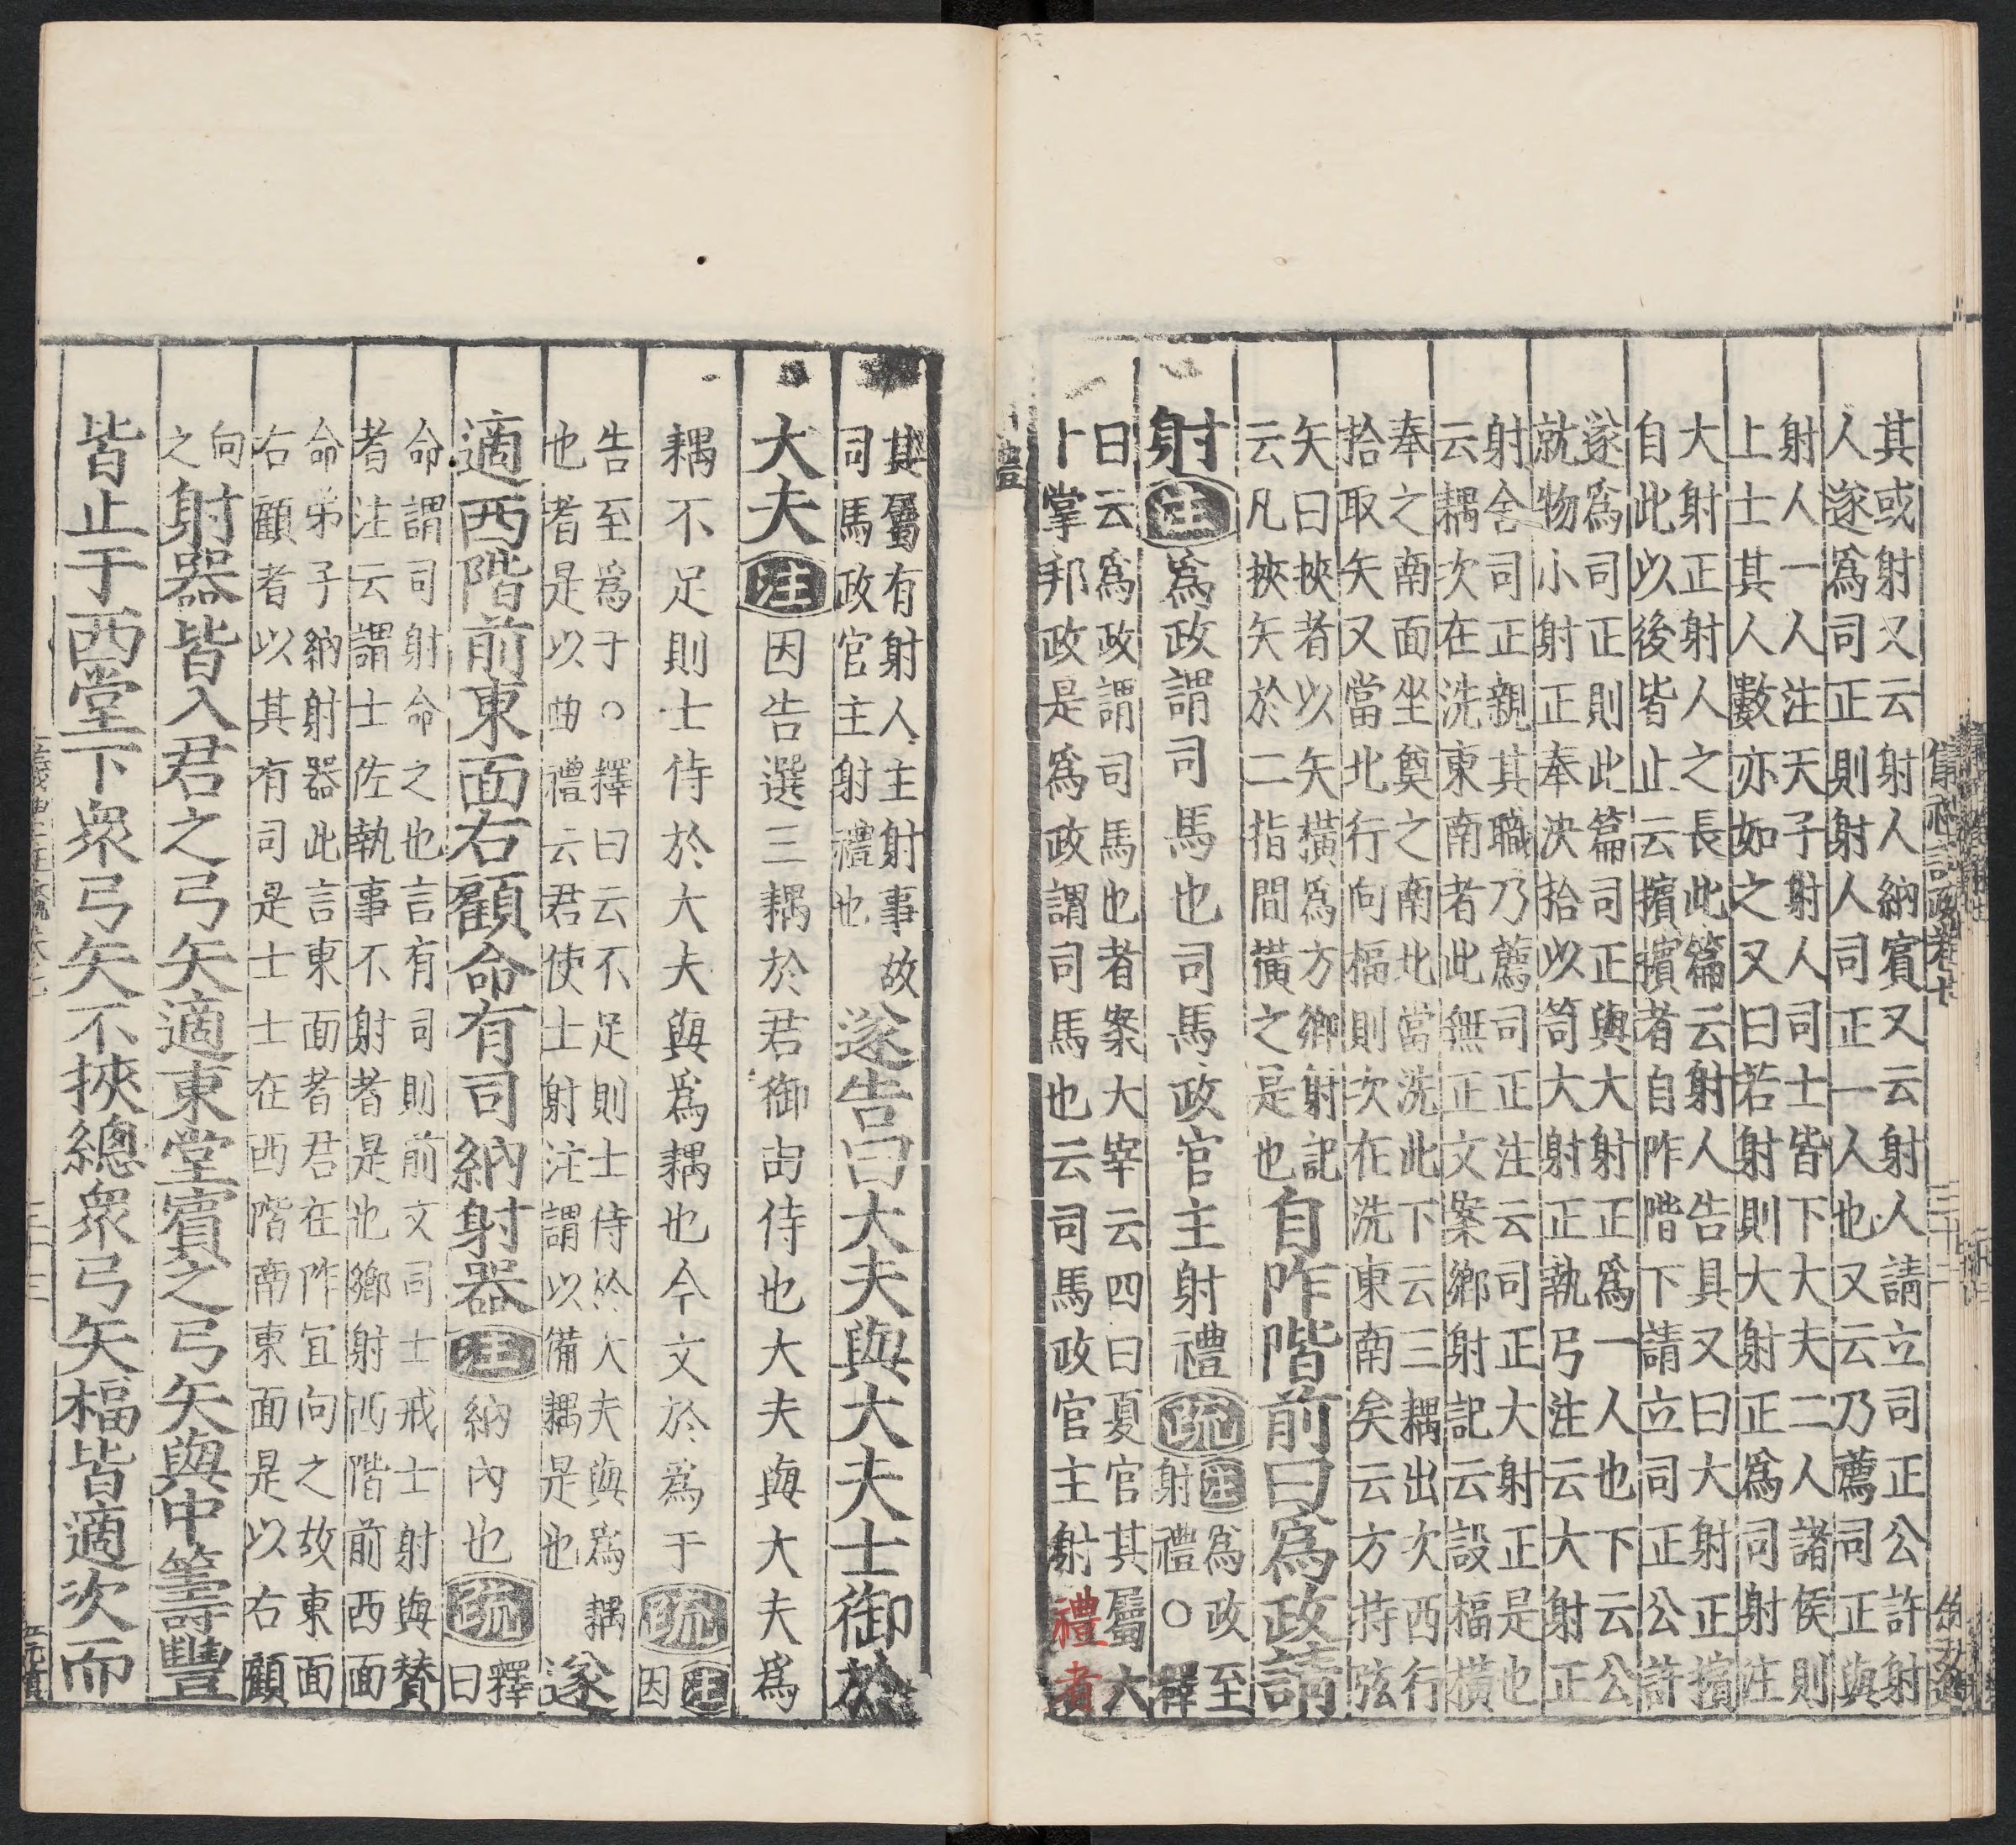 其或射又云射人納賓又云射人請立司正公許射
人遂爲司正則射人司正一人也又云乃薦司正與
射人一人注天子射人司士皆下大夫二人諸侯則
上士其人數亦如之又曰若射則大射正爲司射注
大射正射人之長此篇云射人告具又曰大射正擯
自此以後皆止云擯擯者自阼階下請立司正公許
遂爲司正則此篇司正與大射正爲一人也下云公
就物小射正奉決拾以笥大射正執弓注云大射正
射舍司正親其職乃薦司正注云司正大射正是也
云耦次在洗東南者此無正文案鄉射記云設楅橫
奉之南面坐奠之南北當洗此下云三耦出次西行
拾取矢又當北行向楅則次在洗東南矣云方持弦
矢曰挾挾者以矢橫爲方鄉射記
云凡挾矢於二指間橫之是也
自阼階前曰爲政請
射注爲政謂司馬也司馬政官主射禮疏注爲政至
射禮○釋
曰云爲政謂司馬也者案大宰云四曰夏官其屬六
卜掌邦政是爲政謂司馬也云司馬政官主射禮者
其屬有射人主射事故
司馬政官主射禮也
遂告曰大夫與大夫士御於
大夫注因告選三耦於君御由侍也大夫與大夫爲
耦不足則士侍於大夫與爲耦也今文於爲于疏注
因
告至爲于○釋曰云不足則士侍於大夫與爲耦
也者是以曲禮云君使士射注謂以備耦是也
遂
適西階前東面右顧命有司納射器注納內也疏釋
曰
命謂司射命之也言有司則前文司士戒士射與贊
者注云謂士佐執事不射者是也鄉射西階前西面
命弟子納射器此言東面者君在阼宜向之故東面
右顧者以其有司是士士在西階南東面是以右顧
向
之射器皆入君之弓矢適東堂賓之弓矢與中籌豐
皆止于西堂下衆弓矢不挾總衆弓矢楅皆適次而